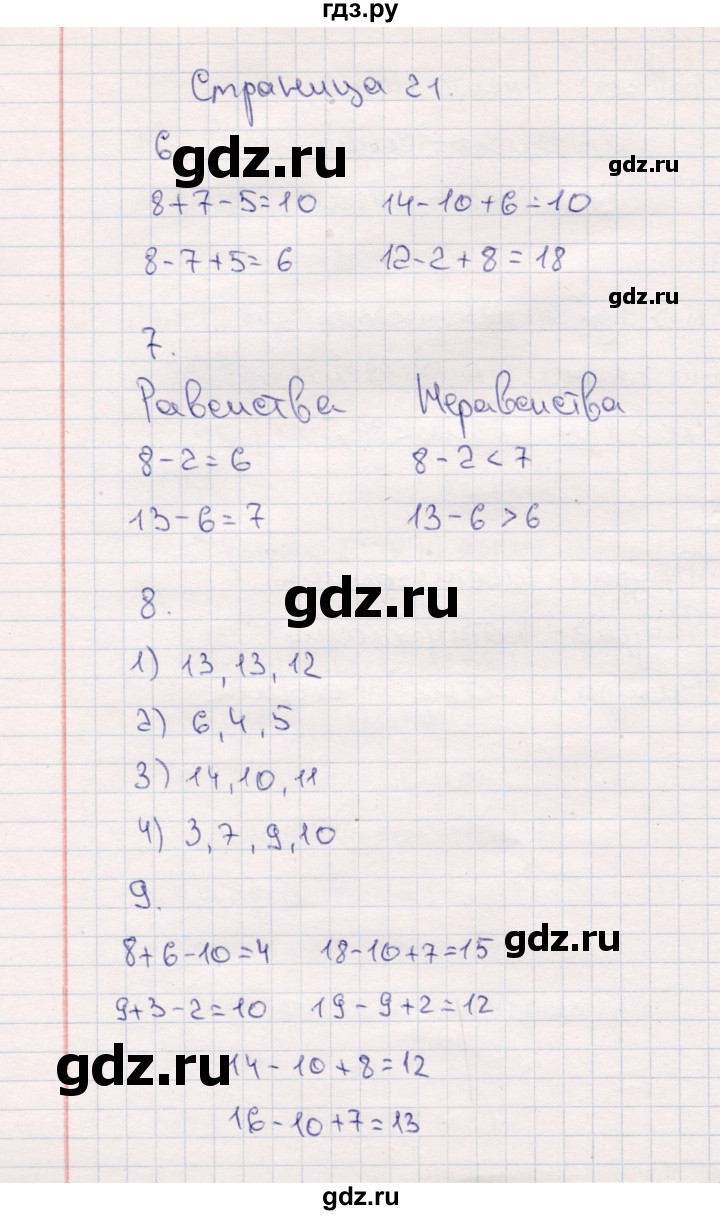 гдз.ру
Страница 21.
6 gdz.ru gdz.ru
8+7-5=10 14-10+6=10
8-7+5=6 12-2+8=18
gdz.ru
7.
Равенства Неравенства
8-2=6 8-2<7
13-6=7 13-6>6
8. gdz.ru
1) 13, 13, 12
2) 6, 4, 5
3) 14, 10, 11
4) 3, 7, 9, 10
9.
8+6-10=4 18-10+7=15 gdz.ru
9+3-2=10 19-9+2=12
gdz.ru 14-10+8=12
16-10+7=13
gdz.ru